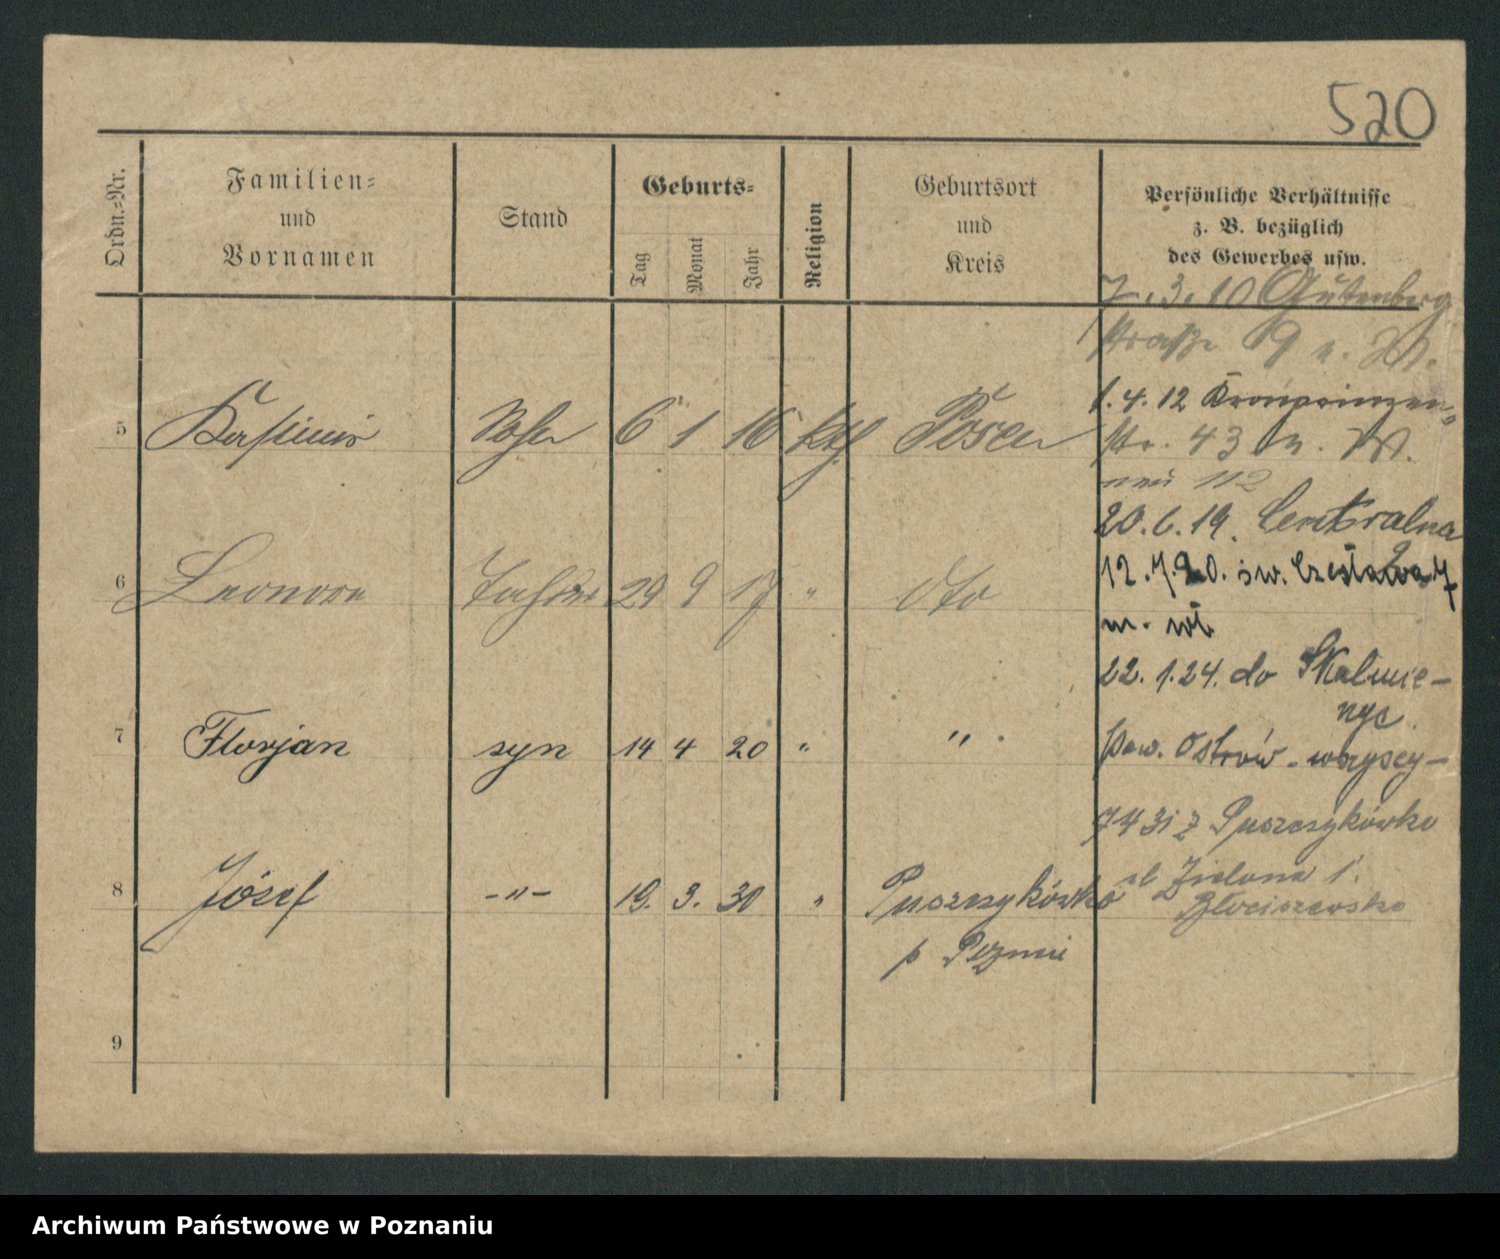 520
Ordn.-Nr.
Familien-
und
Vornamen
Stand
Geburts-
Tag
Monat
Jahr
Religion
Geburtsort
und
Kreis
Persönliche Verhältnisse
z. B. bezüglich
des Gewerbes usw.
7.3.10 Gutenberg
straße 19 n. W.
1.4.12 Kronprinzen-
str. 43 n. W.
neu 112
20.6.19. Centralna 9
12.7.20. św. Czesława 7
m. wł
22.1.24. do Skalmie-
rzyc
pow. Ostrów - wszyscy -
7431 z Puszczykówko
ul Zielona 1.
5 Kasimir Sohn 6 1 16 kth Posen
6 Leonora Tochter 29 9 17 " dto
7 Florjan syn 14 4 20 " "
8 Józef -"- 19. 3. 30 " Puszczykówko
p Pozn
9
Archiwum Państwowe w Poznaniu